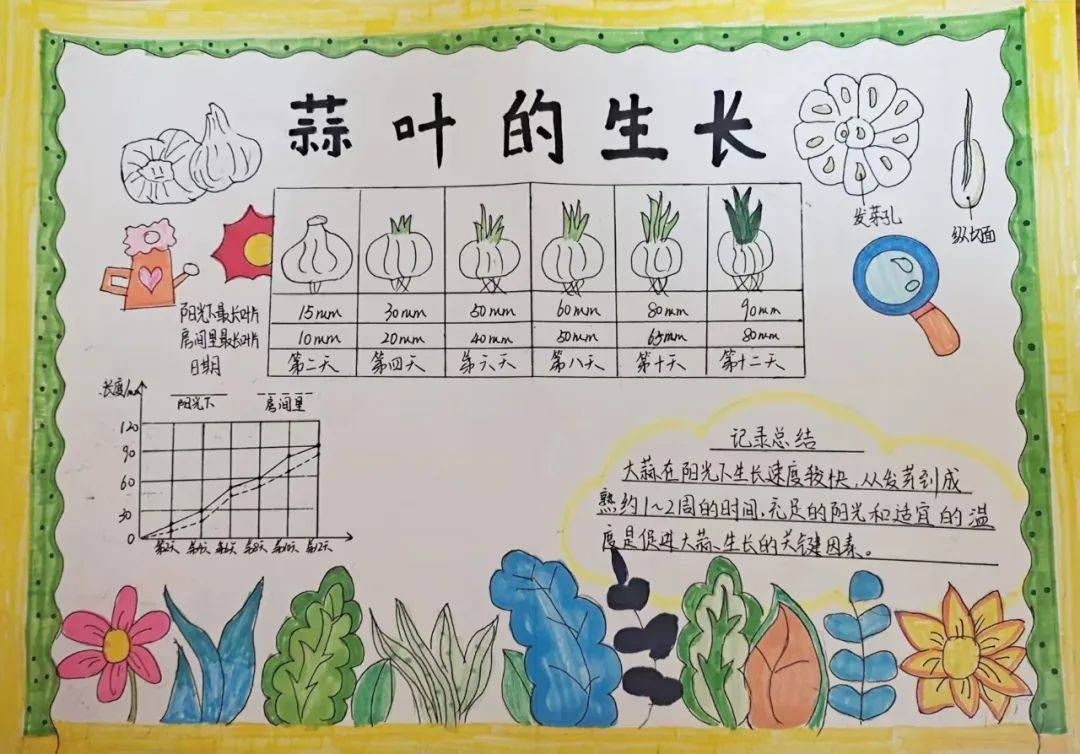 蒜叶的生长
发芽孔
纵切面
阳光下最长叶片 15mm 30mm 50mm 60mm 80mm 90mm
房间里最长叶片 10mm 20mm 40mm 50mm 65mm 80mm
日期 第二天 第四天 第六天 第八天 第十天 第十二天
长度/mm
阳光下 房间里
120
90
60
30
0
第2天 第4天 第6天 第8天 第10天 第12天
记录总结
大蒜在阳光下生长速度较快,从发芽到成
熟约1~2周的时间,充足的阳光和适宜的温
度是促进大蒜生长的关键因素。